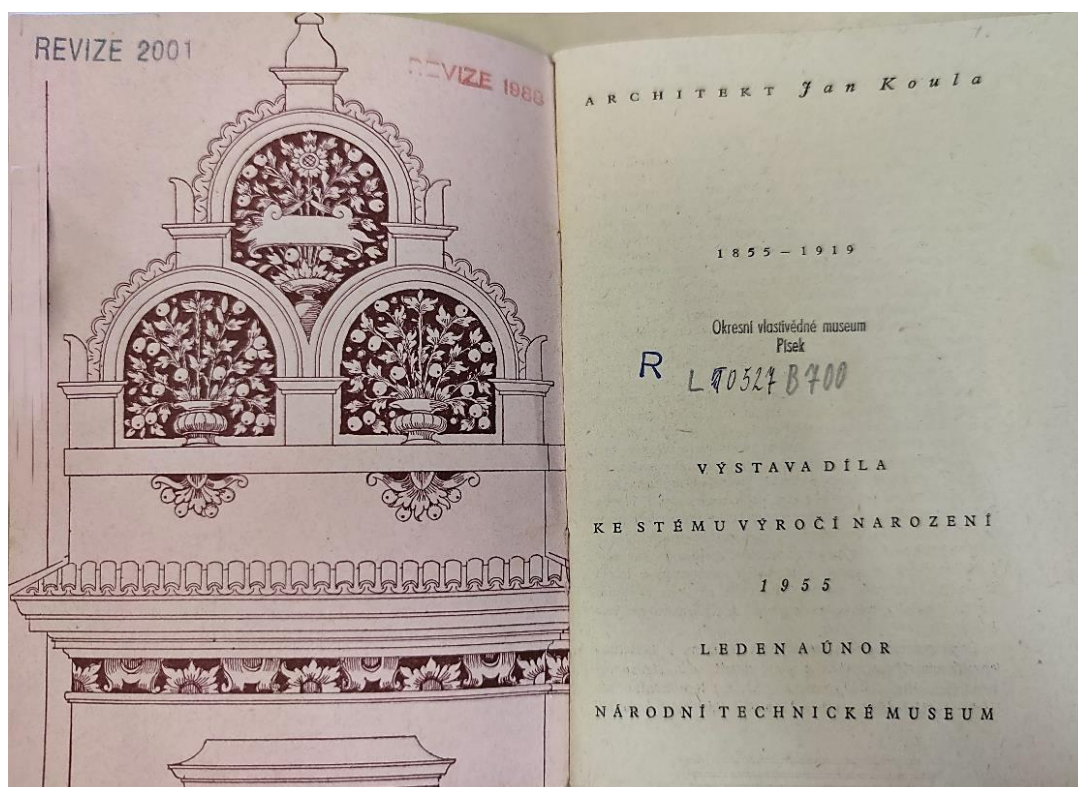 REVIZE 2001
REVIZE 1988
ARCHITEKT Jan Koula
1855–1919
Okresní vlastivědné museum
Písek
R
VÝSTAVA DÍLA
KE STÉMU VÝROČÍ NAROZENÍ
1955
LEDEN A ÚNOR
NÁRODNÍ TECHNICKÉ MUSEUM